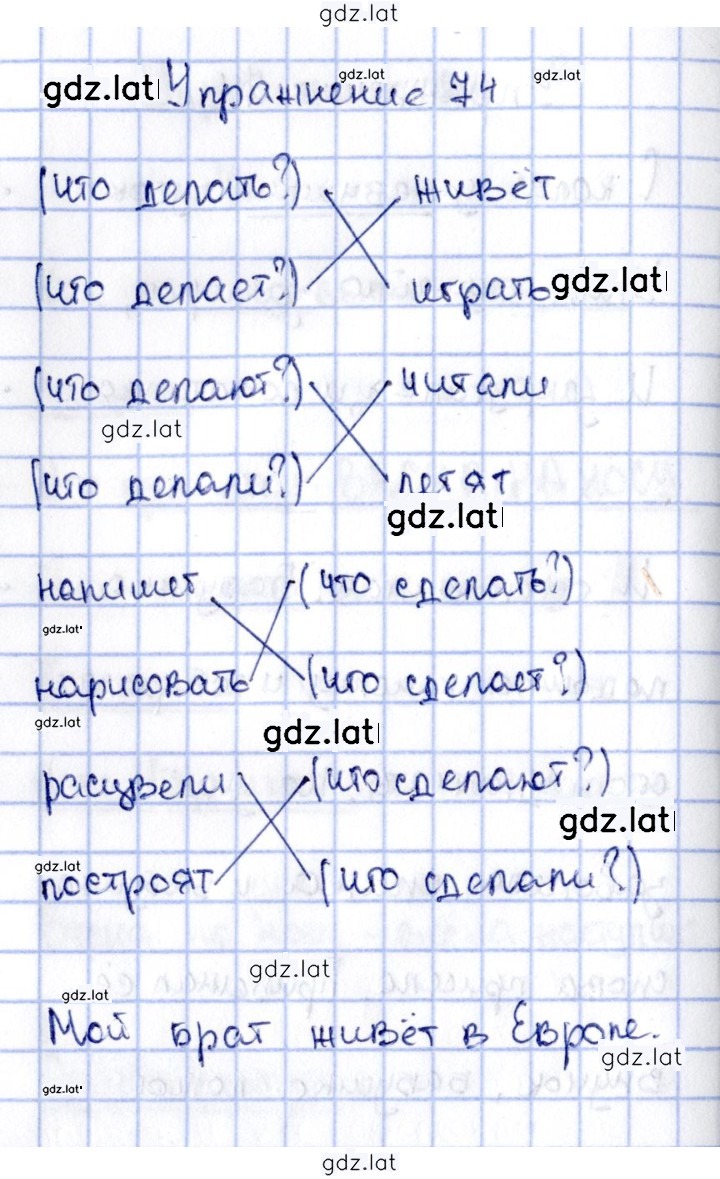 gdz.lat
gdz.lat Упражнение 74 gdz.lat gdz.lat
(что делать?) живёт
(что делает?) играть gdz.lat
(что делают?) читали
gdz.lat
(что делали?) летят
gdz.lat
напишет (что сделать?)
gdz.lat
нарисовать (что сделает?)
gdz.lat
gdz.lat
расцвели (что сделают?)
gdz.lat
gdz.lat
построят (что сделали?)
gdz.lat
gdz.lat
Мой брат живёт в Европе.
gdz.lat
gdz.lat
gdz.lat